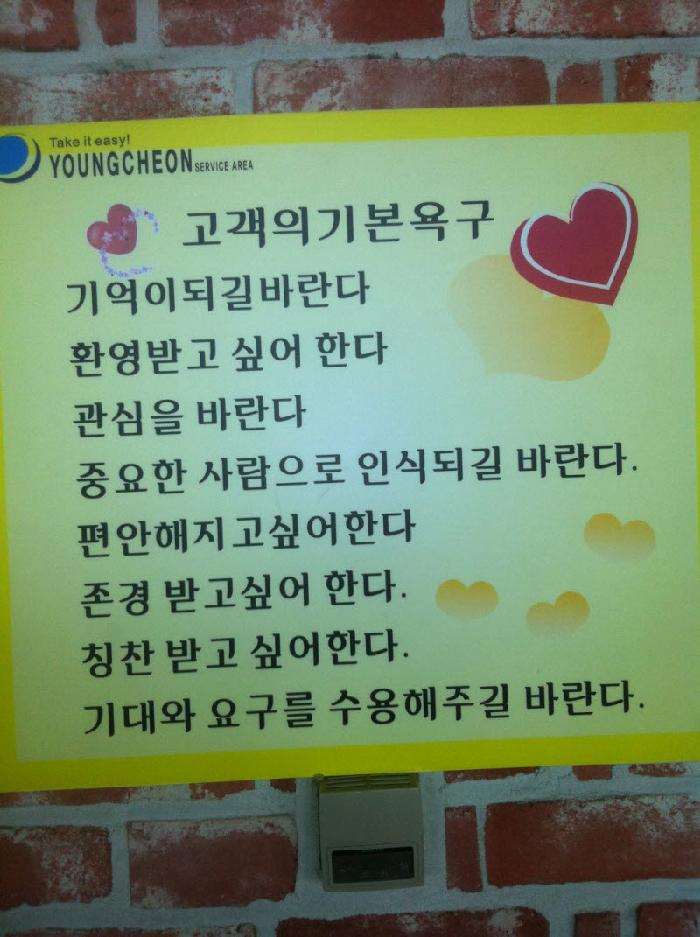 Take it easy!
YOUNGCHEON SERVICE AREA
고객의기본욕구
기억이되길바란다
환영받고 싶어 한다
관심을 바란다
중요한 사람으로 인식되길 바란다.
편안해지고싶어한다
존경 받고싶어 한다.
칭찬 받고 싶어한다.
기대와 요구를 수용해주길 바란다.